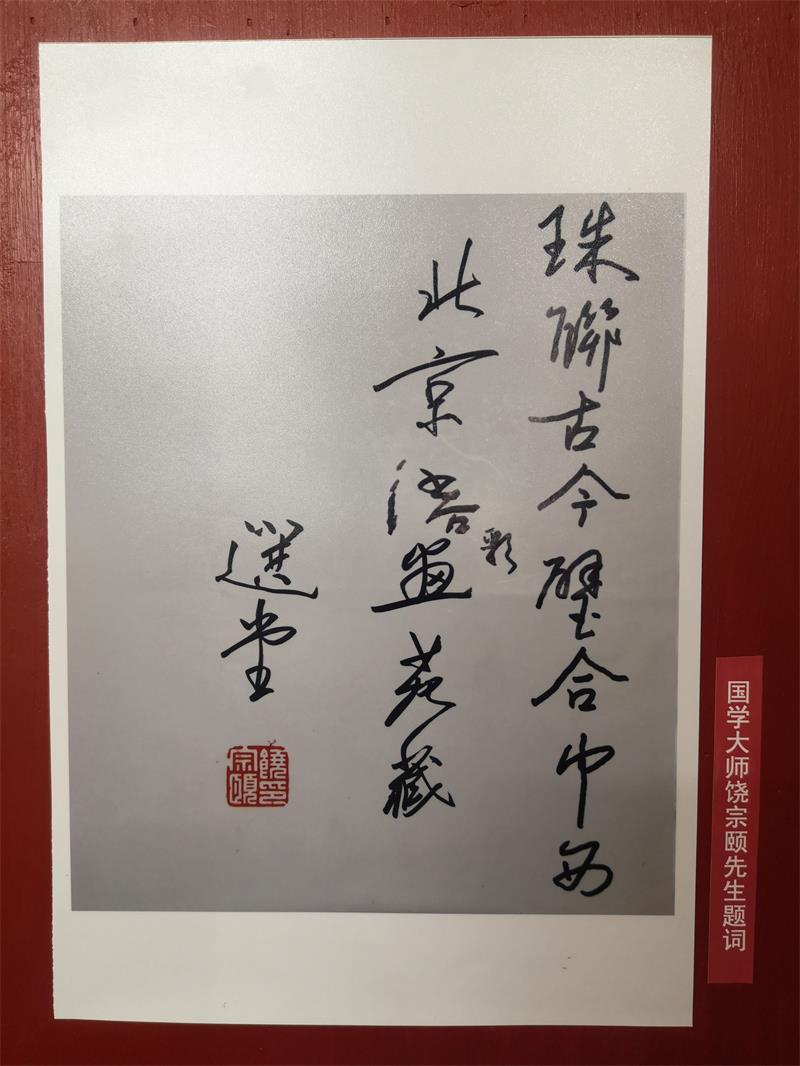 珠聯古今璧合中西
北京畫苑藏
選堂
饒宗頤印
国学大师饶宗颐先生题词